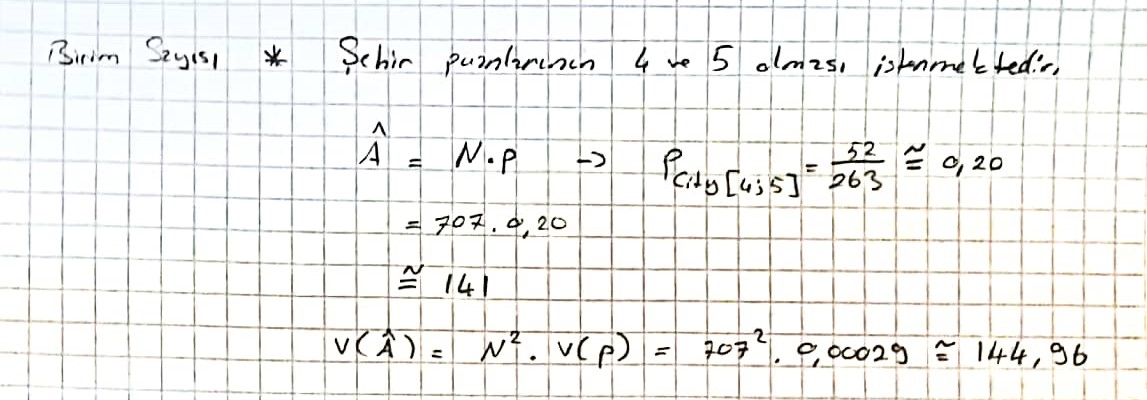 Birim Sayısı * Şehir puanlarının 4 ve 5 olması istenmektedir.
Â = N.p → P City[4;5] = 52/263 ≅ 0,20
= 707. 0,20
≅ 141
V(Â) = N². V(p) = 707². 0,00029 ≅ 144,96